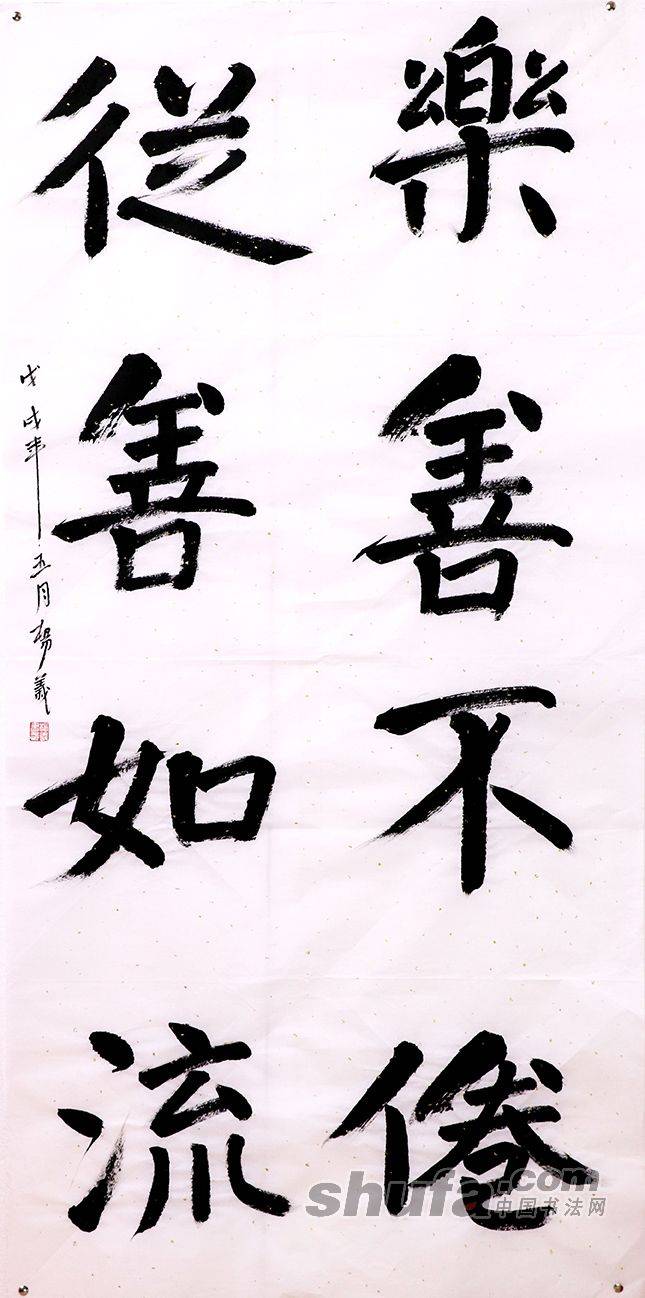 樂善不倦
從善如流
戊戌年五月楊義
shufa.com
中国书法网